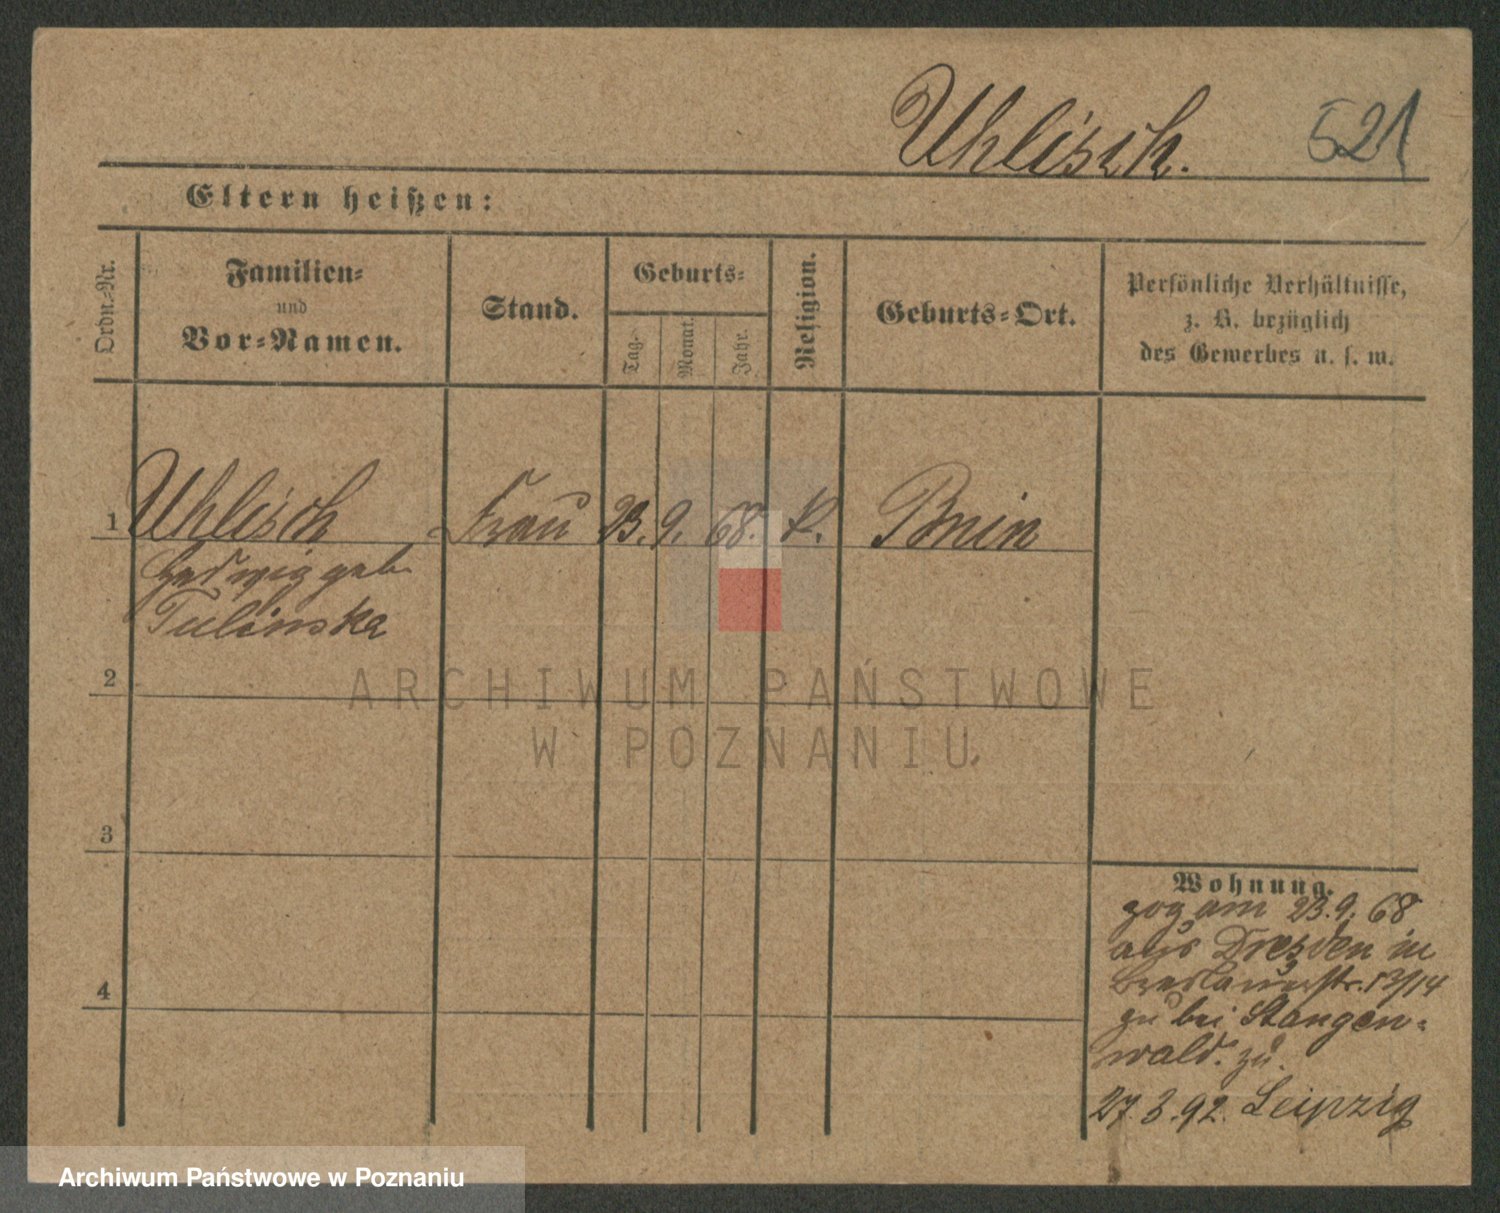 Uhlisch. 521
Eltern heißen:
Ordn.-Nr.
Familien-
und
Vor-Namen.
Stand.
Geburts-
Tag.
Monat.
Jahr.
Religion.
Geburts-Ort.
Persönliche Verhältnisse,
z. B. bezüglich
des Gewerbes u. s. w.
1 Uhlisch Frau 23. 9. 68. k. Bnin
Hedwig geb
Tulinska
2
ARCHIWUM PAŃSTWOWE
W POZNANIU
3
4
Wohnung.
zog am 23. 9. 68
aus Dresden in
Breslauerstr. 13/14
zu bei Stangen-
wald. zu.
27. 3. 92. Leipzig
Archiwum Państwowe w Poznaniu